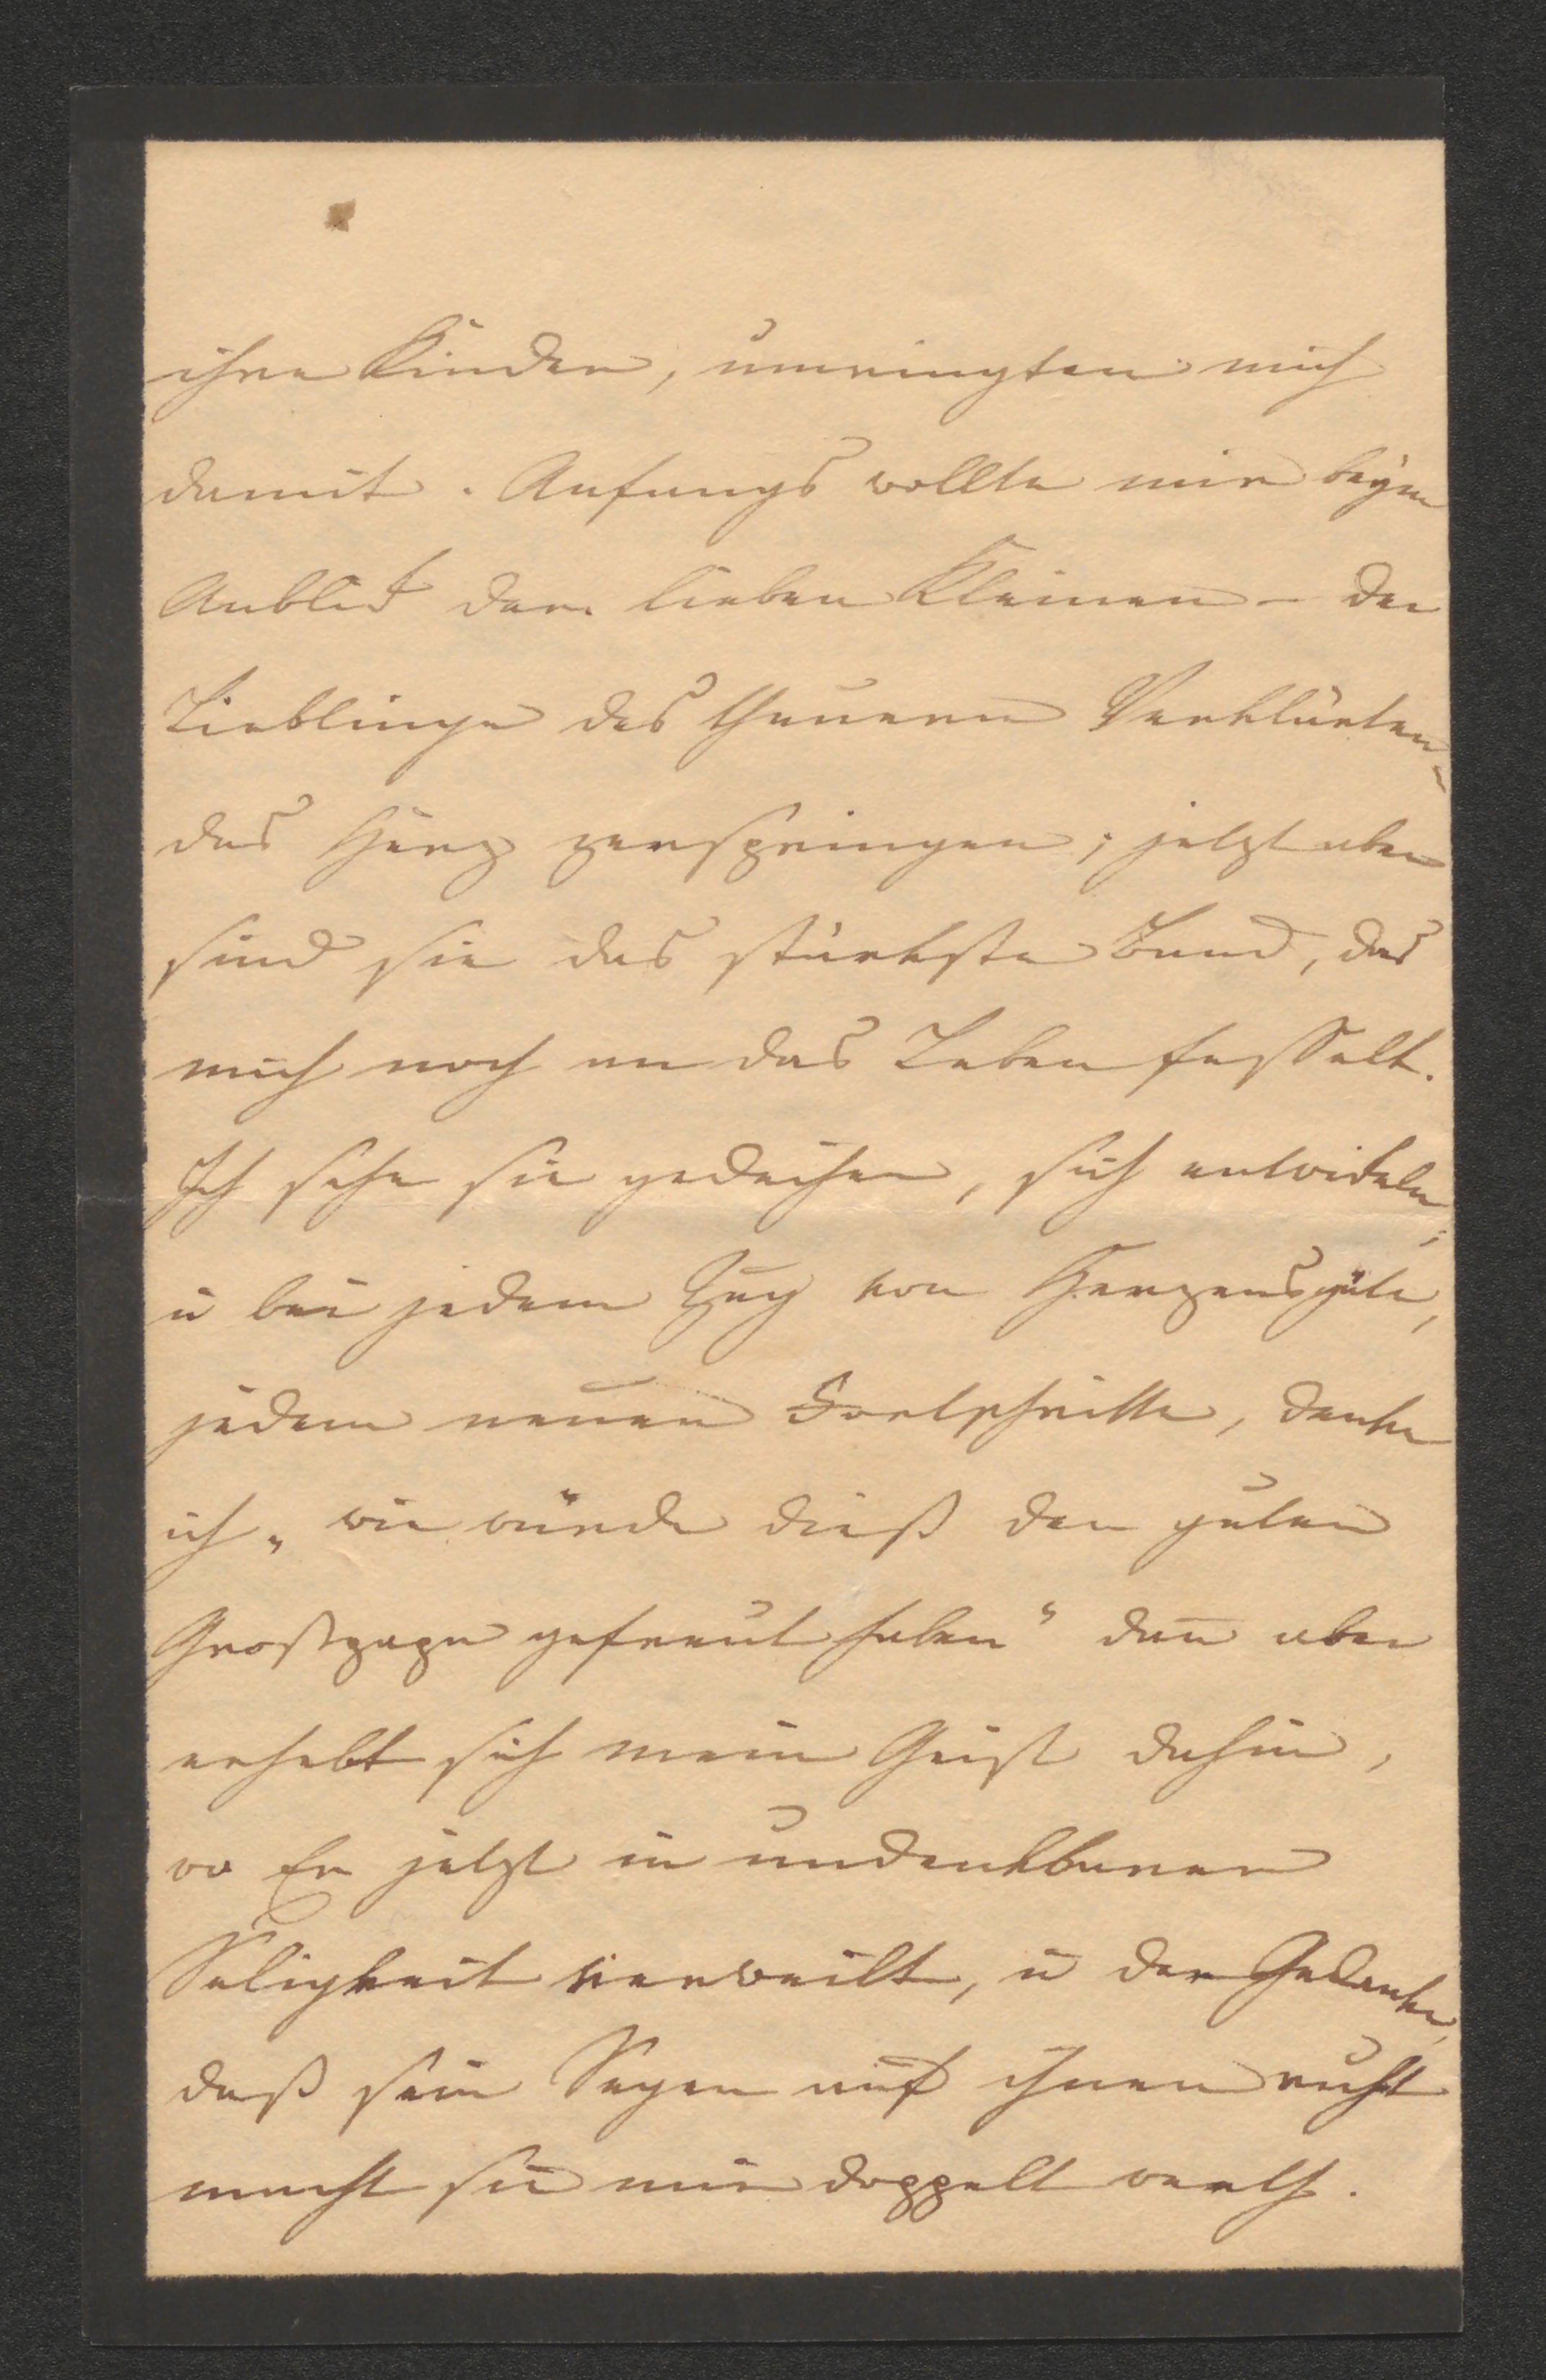 ihre Kinder, umringten mich
damit. Anfangs wollte mir beym
Anblick der lieben Kleinen – der
Lieblinge des theuern Verklärten –
das Herz zerspringen; jetzt aber
sind sie das stärkste Band, das
mich noch an das Leben fesselt.
Ich sehe sie gedeihen, sich entwickeln;
u bei jedem Zug von Herzensgüte,
jedem neuen Fortschritte, denke
ich „wie würde dieß den guten
Großpapa gefreut haben“ dan̄ aber
erhebt sich mein Geist dahin,
wo Er jetzt in undenkbarer
Seligkeit verweilt, u der Gedanke,
daß sein Segen auf ihnen ruht
macht sie mir doppelt werth.